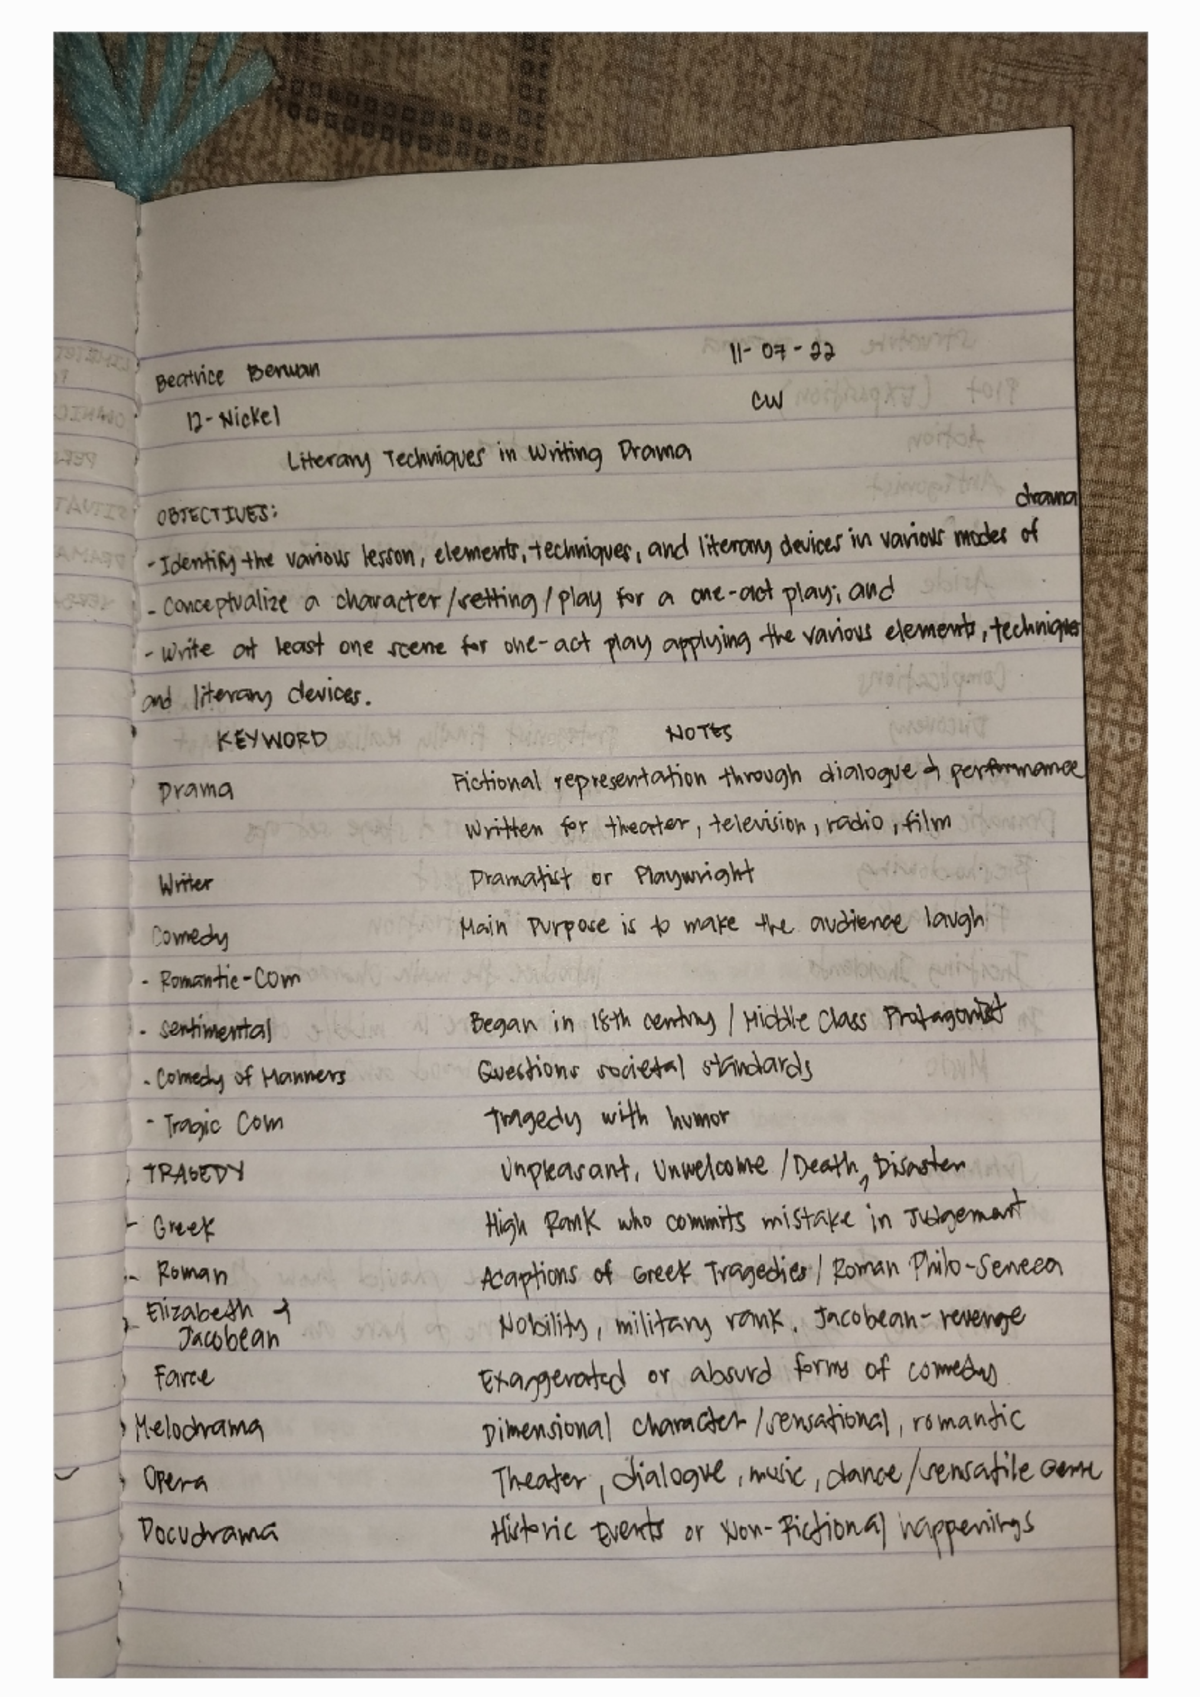 Beatrice 11-07-22
12-Nickel CW
Literary Techniques in Writing Drama
OBJECTIVES: drama
- Identify the various lesson, elements, techniques, and literary devices in various modes of
- Conceptualize a character/setting/play for a one-act play; and
- Write at least one scene for one-act play applying the various elements, techniques
and literary devices.
KEYWORD NOTES
Drama Fictional representation through dialogue & performance
Written for theater, television, radio, film
Writer Dramatist or Playwright
Comedy Main Purpose is to make the audience laugh
- Romantic-Com
- Sentimental Began in 18th century / Middle Class Protagonist
- Comedy of Manners Questions societal standards
- Tragic Com Tragedy with humor
TRAGEDY Unpleasant, Unwelcome / Death, Disaster
- Greek High Rank who commits mistake in Judgement
- Roman Adaptions of Greek Tragedies / Roman Philo-Seneca
- Elizabeth & Jacobean Nobility, military rank. Jacobean-revenge
Farce Exaggerated or absurd forms of comedy
Melodrama Dimensional character / sensational, romantic
Opera Theater, dialogue, music, dance /
Docudrama Historic Events or Non-Fictional happenings